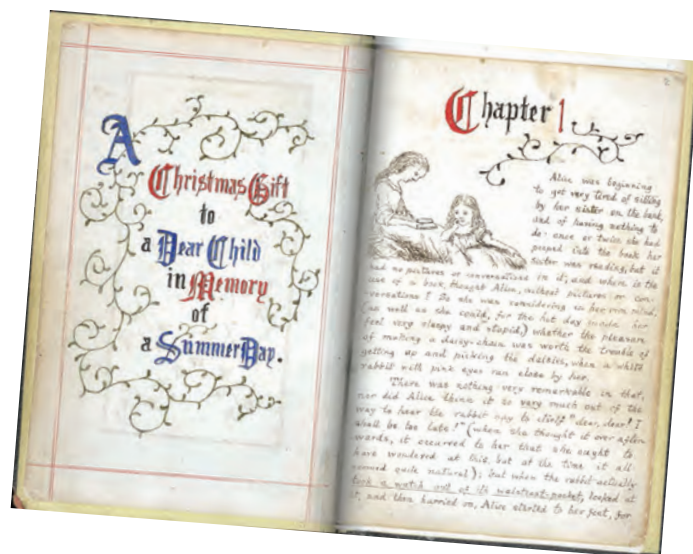 A
Christmas Gift
to
a Dear Child
in Memory
of
a Summer Day.
Chapter 1
Alice was beginning
to get very tired of sitting
by her sister on the bank,
and of having nothing to
do: once or twice she had
peeped into the book her
sister was reading, but it
had no pictures or conversations in it, and where is the
use of a book, thought Alice, without pictures or con-
-versations? So she was considering in her own mind,
(as well as she could, for the hot day made her
feel very sleepy and stupid,) whether the pleasure
of making a daisy-chain was worth the trouble of
getting up and picking the daisies, when a white
rabbit with pink eyes ran close by her.
There was nothing very remarkable in that,
nor did Alice think it so very much out of the
way to hear the rabbit say to itself "dear, dear! I
shall be too late!" (when she thought it over after-
wards, it occurred to her that she ought to
have wondered at this, but at the time it all
seemed quite natural); but when the rabbit actually
took a watch out of its waistcoat-pocket, looked at
it, and then hurried on, Alice started to her feet, for